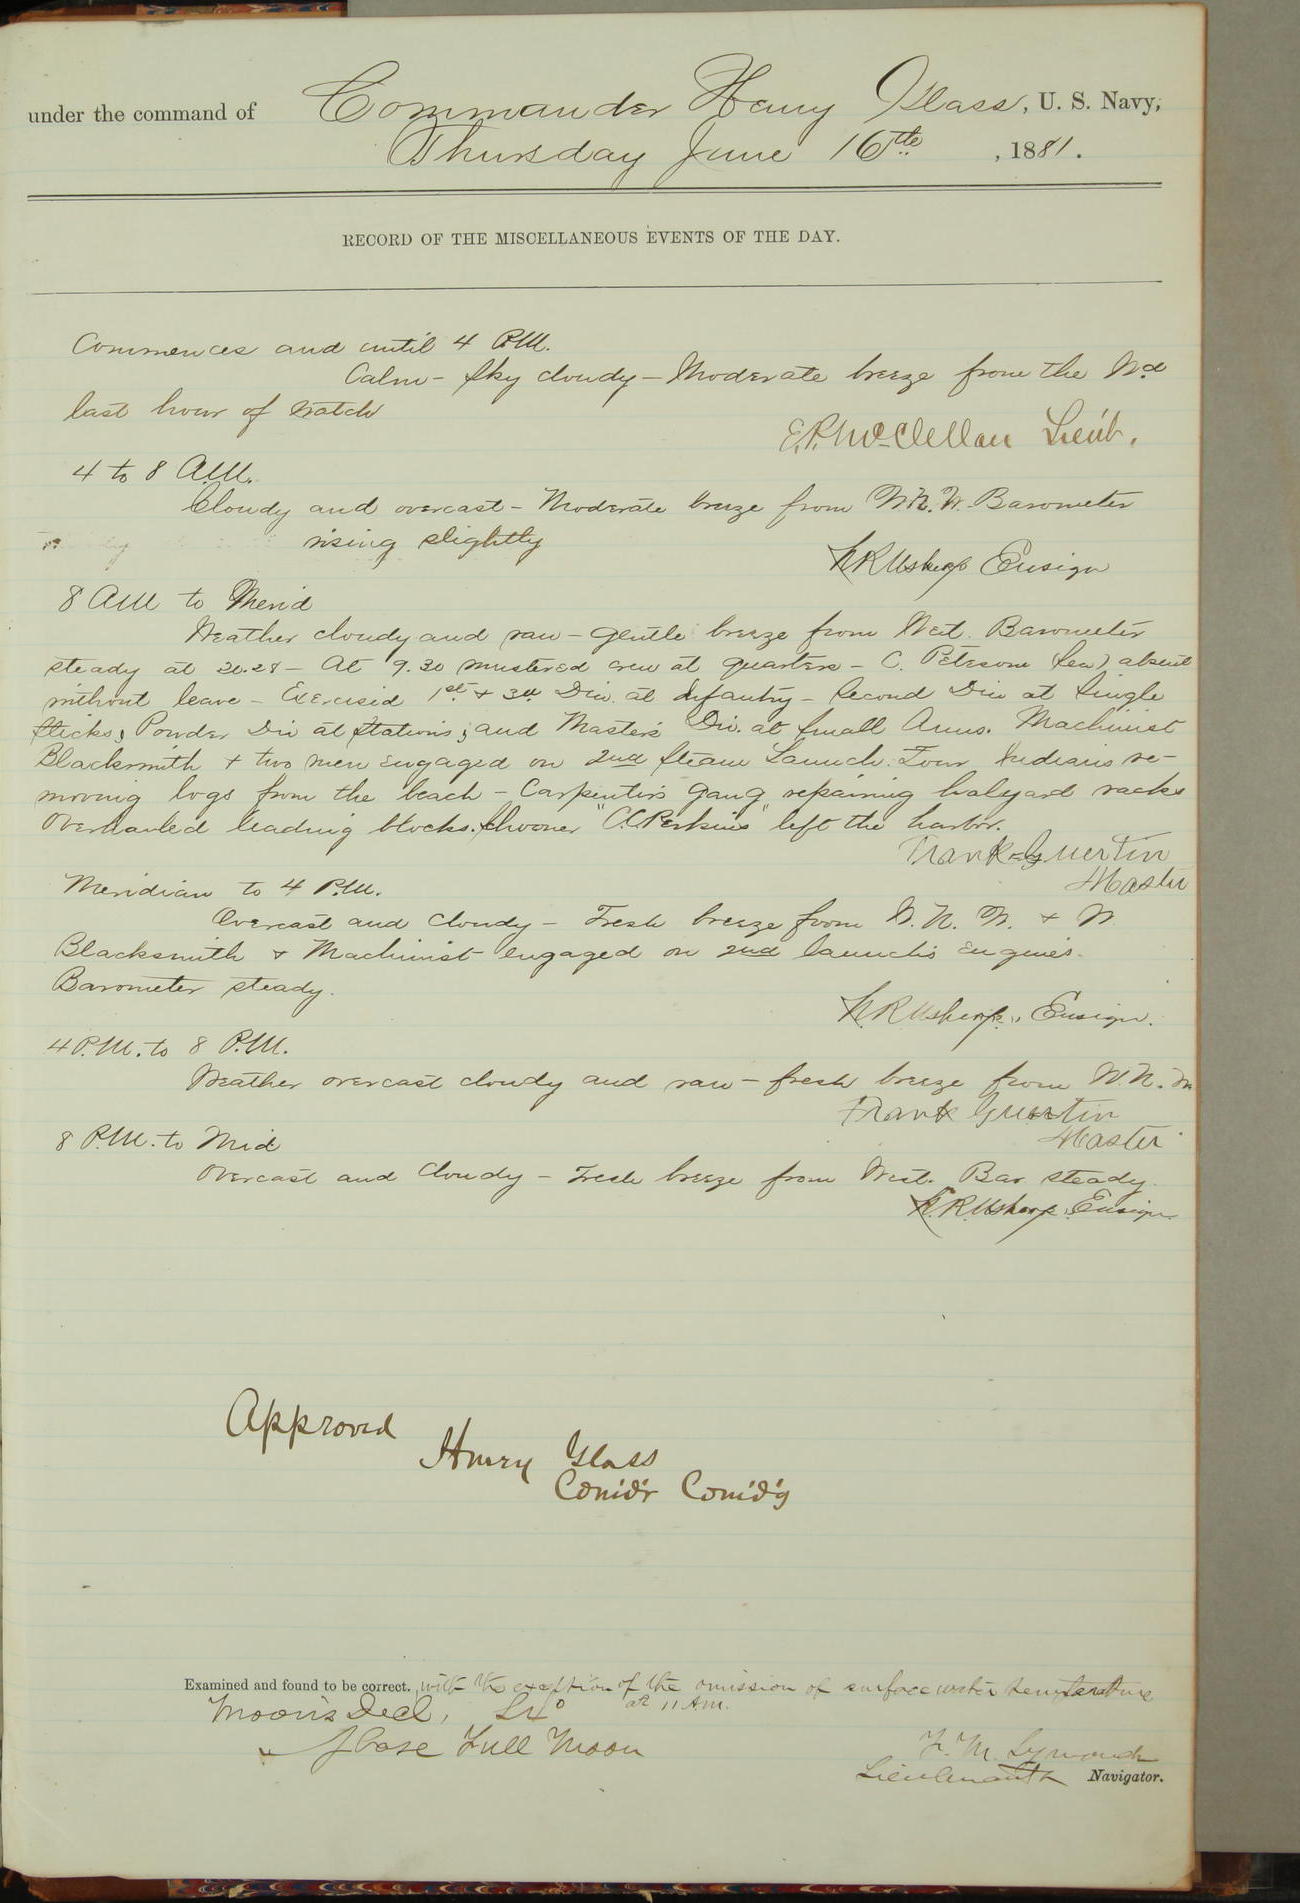 under the command of Commander Henry Glass, U. S. Navy,
Thursday June 16th, 1881.
RECORD OF THE MISCELLANEOUS EVENTS OF THE DAY.
Commences and until 4 P.M.
Calm - Sky cloudy - Moderate breeze from the Wd
last hour of watch
E.P. McClellan Lieut.
4 to 8 A.M.
Cloudy and overcast - Moderate breeze from W.N.W. Barometer
rising slightly
N R Usher Ensign
8 AM to Merid
Weather cloudy and raw - gentle breeze from West. Barometer
steady at 30.28 - At 9.30 mustered crew at quarters - C. Peterson (Sea) absent
without leave - Exercised 1st & 3d Div. at Infantry - Second Div at Single
Sticks, Powder Div at Stations; and Master's Div. at Small Arms. Machinist
Blacksmith & two men engaged on 2nd Steam Launch. Four Indians re-
moving logs from the beach - Carpenter's gang repairing halyard racks
Overhauled leading blocks. Schooner "C.C. Perkins" left the harbor.
Frank Guertin
Master
Meridian to 4 P.M.
Overcast and cloudy - Fresh breeze from W. N. W. & W
Blacksmith & Machinist engaged on 2nd launch's engines.
Barometer steady.
N. R Usher, Ensign.
4 P.M. to 8 P.M.
Weather overcast cloudy and raw - fresh breeze from W.N.W
Frank Guertin
Master
8 P.M. to Mid
Overcast and Cloudy - Fresh breeze from West. Bar steady.
N. R. Usher, Ensign.
Approved
Henry Glass
Com'd'r Com'd'g
Examined and found to be correct. with the exception of the omission of surface water temperature
at 11 A.M.
Moon's Decl,
Phase Full Moon
F. M. Symonds
Lieutenant Navigator.